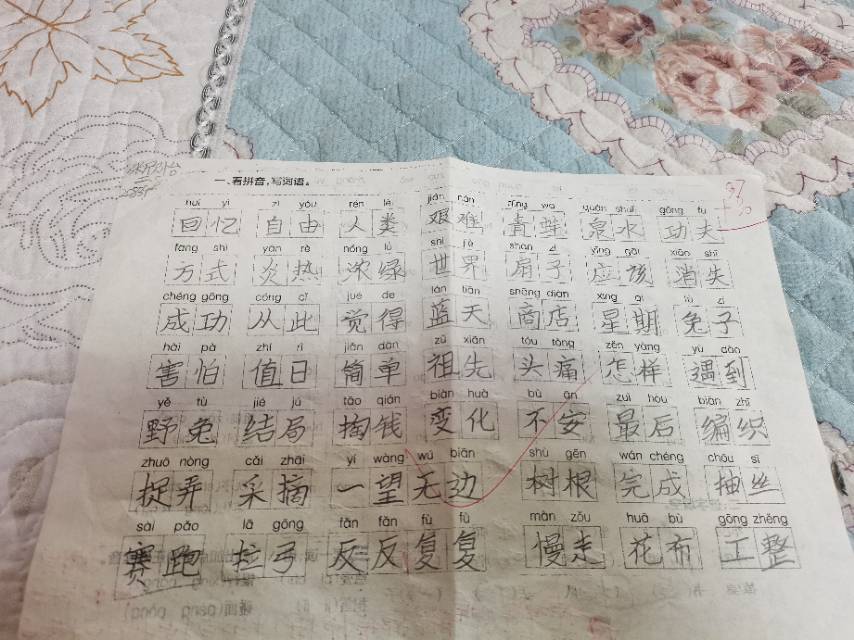 一、看拼音,写词语。
huí yì zì yóu rén lèi jiān nán qīng wā quán shuǐ gōng fu
回忆 自由 人类 艰难 青蛙 泉水 功夫
fāng shì yán rè nóng lǜ shì jiè shàn zi yīng gāi xiāo shī
方式 炎热 浓绿 世界 扇子 应该 消失
chéng gōng cóng cǐ jué de lán tiān shāng diàn xīng qī tù zi
成功 从此 觉得 蓝天 商店 星期 兔子
hài pà zhí rì jiǎn dān zǔ xiān tóu tòng zěn yàng yù dào
害怕 值日 简单 祖先 头痛 怎样 遇到
yě tù jié jú tāo qián biàn huà bù ān zuì hòu biān zhī
野兔 结局 掏钱 变化 不安 最后 编织
zhuō nòng cǎi zhāi yí wàng wú biān shù gēn wán chéng chōu sī
捉弄 采摘 一望无边 树根 完成 抽丝
sài pǎo lā gōng fǎn fǎn fù fù màn zǒu huā bù gōng zhěng
赛跑 拉弓 反反复复 慢走 花布 工整